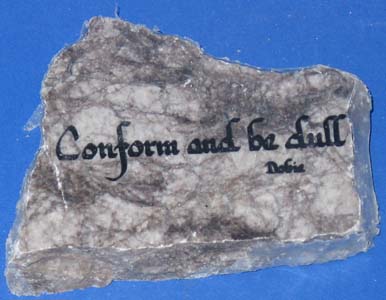 Conform and be dull
Dobie